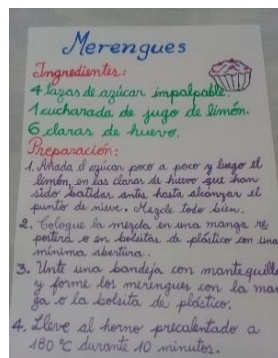 Merengues
Ingredientes:
4 tazas de azúcar impalpable.
1 cucharada de jugo de limón.
6 claras de huevo.
Preparación:
1. Añada el azúcar poco a poco y luego el
limón, en las claras de huevo que han
sido batidas antes hasta alcanzar el
punto de nieve. Mezcle todo bien.
2. Coloque la mezcla en una manga re
postera o en bolsitas de plástico con una
mínima abertura.
3. Unte una bandeja con mantequilla
y forme los merengues con la man
ga o la bolsita de plástico.
4. Lleve al horno precalentado a
180 °C durante 10 minutos.